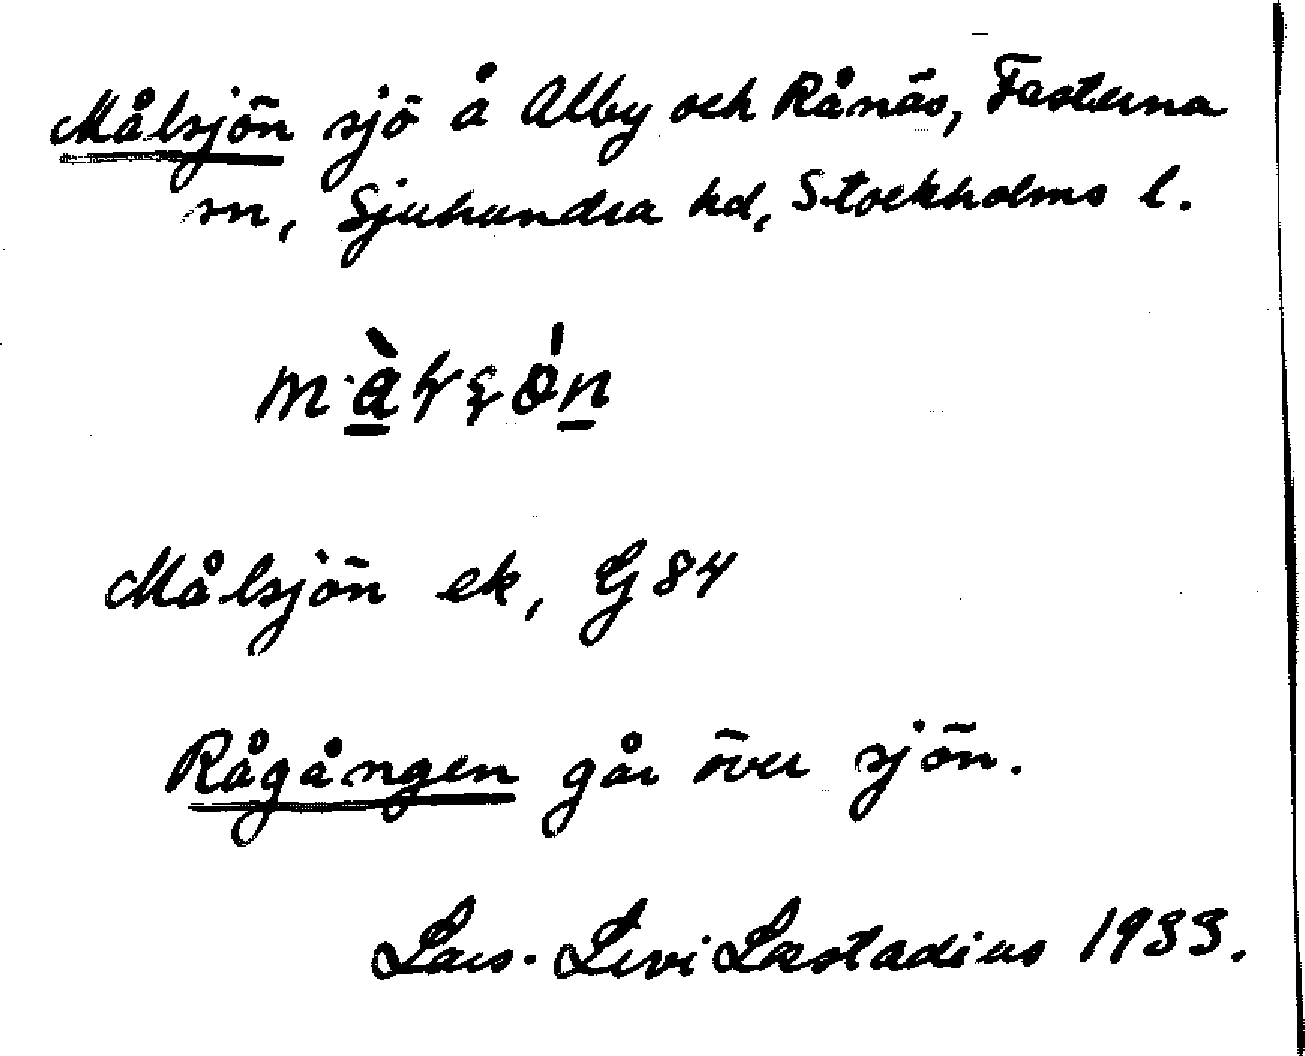 Målsjön sjö å Alby och Rånäs, Fasterna
sn, Sjuhundra hd, Stockholms l.
Målsjön ek, G 84
Rågången går över sjön.
Lars-Levi Læstadius 1933.